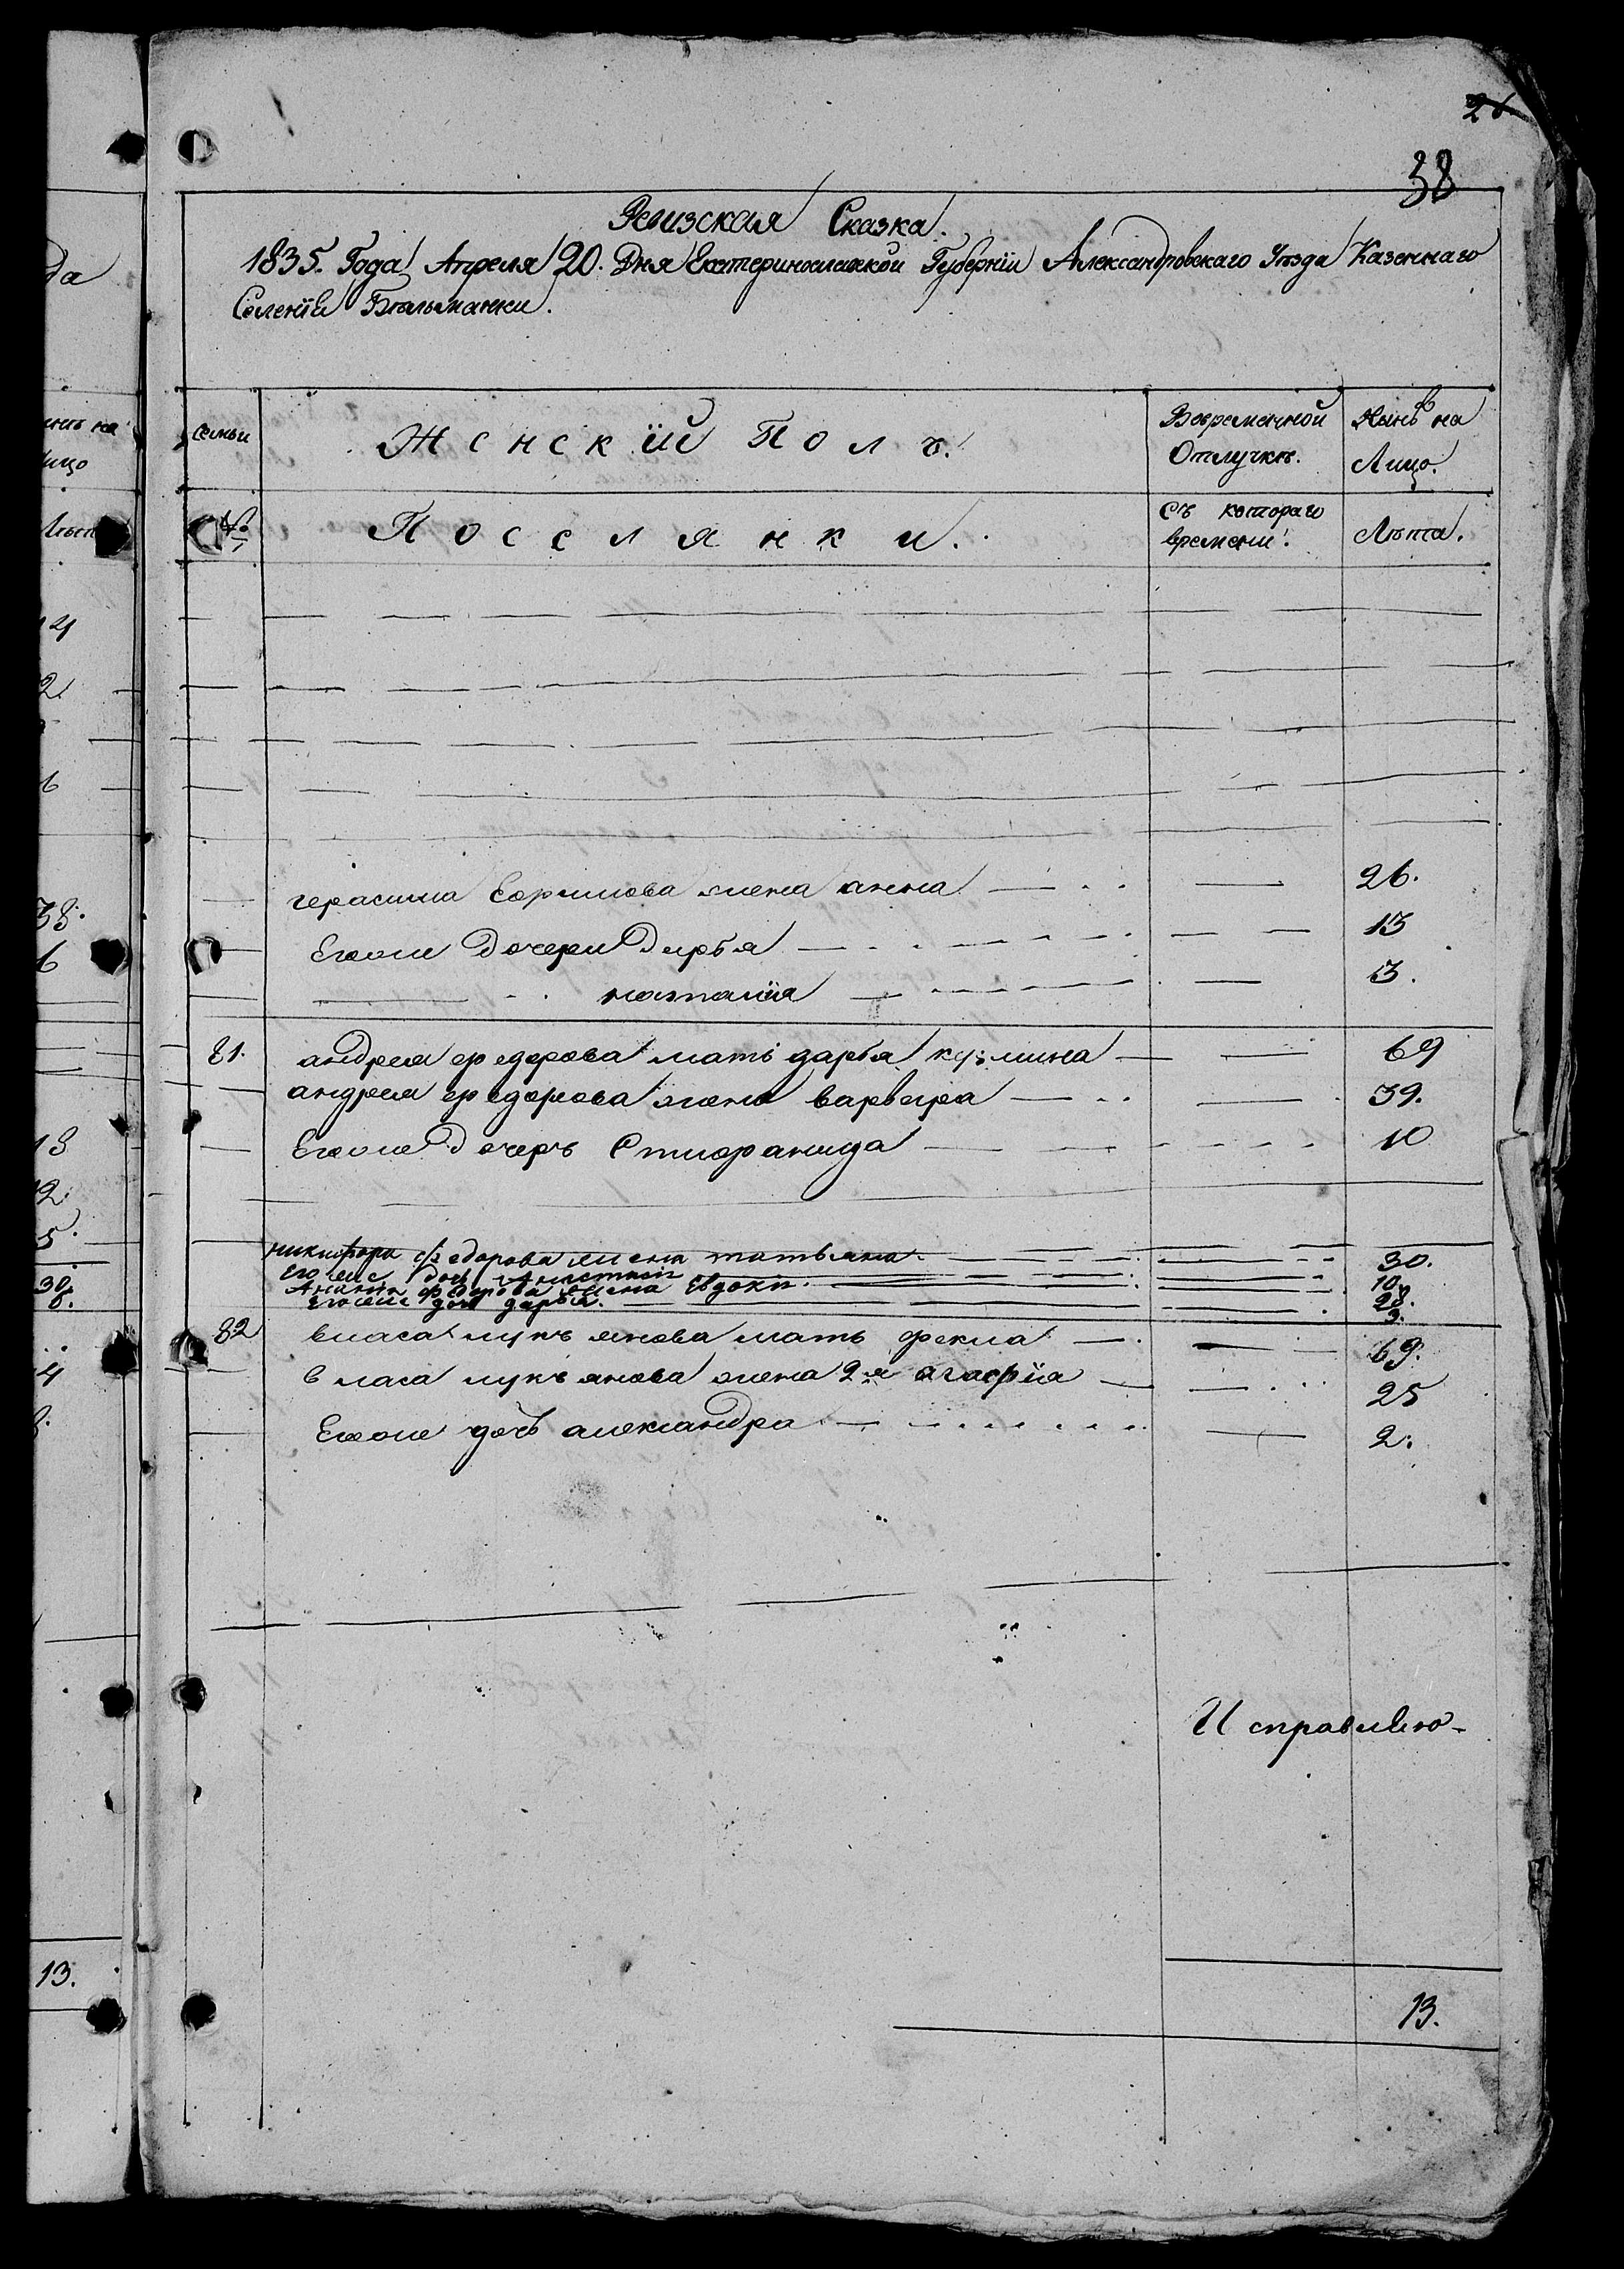 26
38
Ревизская Сказка.
1835. Года Апреля 20. Дня Екатеринославской Губернїи Александровскаго Уѣзда Казеннаго
Селенїя Бѣльманки.
Семьи Женскїй Полъ. Вовременной Отлучкѣ. Нынѣ на Лицо.
№ Поселянки. Съ котораго времени. Лѣта.
герасима Ефимова жена анна 26.
Егоже дочери Дарья 13
наталїя 3.
81. андрея федорова мать дарья кузмина 69
андрея федорова жена варвара 39.
Егоже дочеръ Стифанида 10
никифора федорова жена татьяна 30.
Егоже дочь 10.
федорова жена Евдокия 28.
Егоже дочь дарья. 3.
82 власа лукъянова мать фекла 69.
власа лукъянова жена 2я агафїя 25
Егоже дочь александра 2.
13.
13.